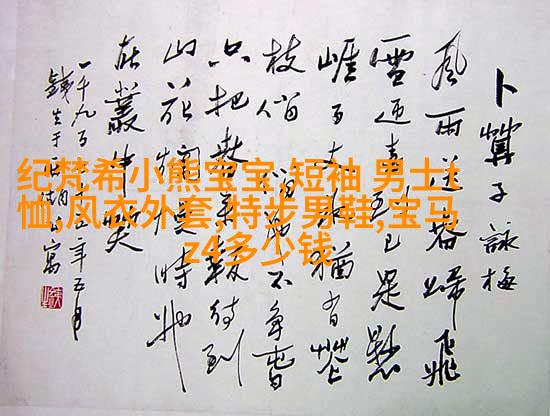 卜算子 詠梅
風雨送春歸 飛
雪迎春到 已是懸
崖百丈 猶有花
枝俏 不爭春
只把春 報 待到
山花爛漫時 她
在叢中笑
一千九百 年五月
寓
纪梵希小熊宝宝,短袖 男士t
恤,风衣外套,特步男鞋,宝马
z4多少钱